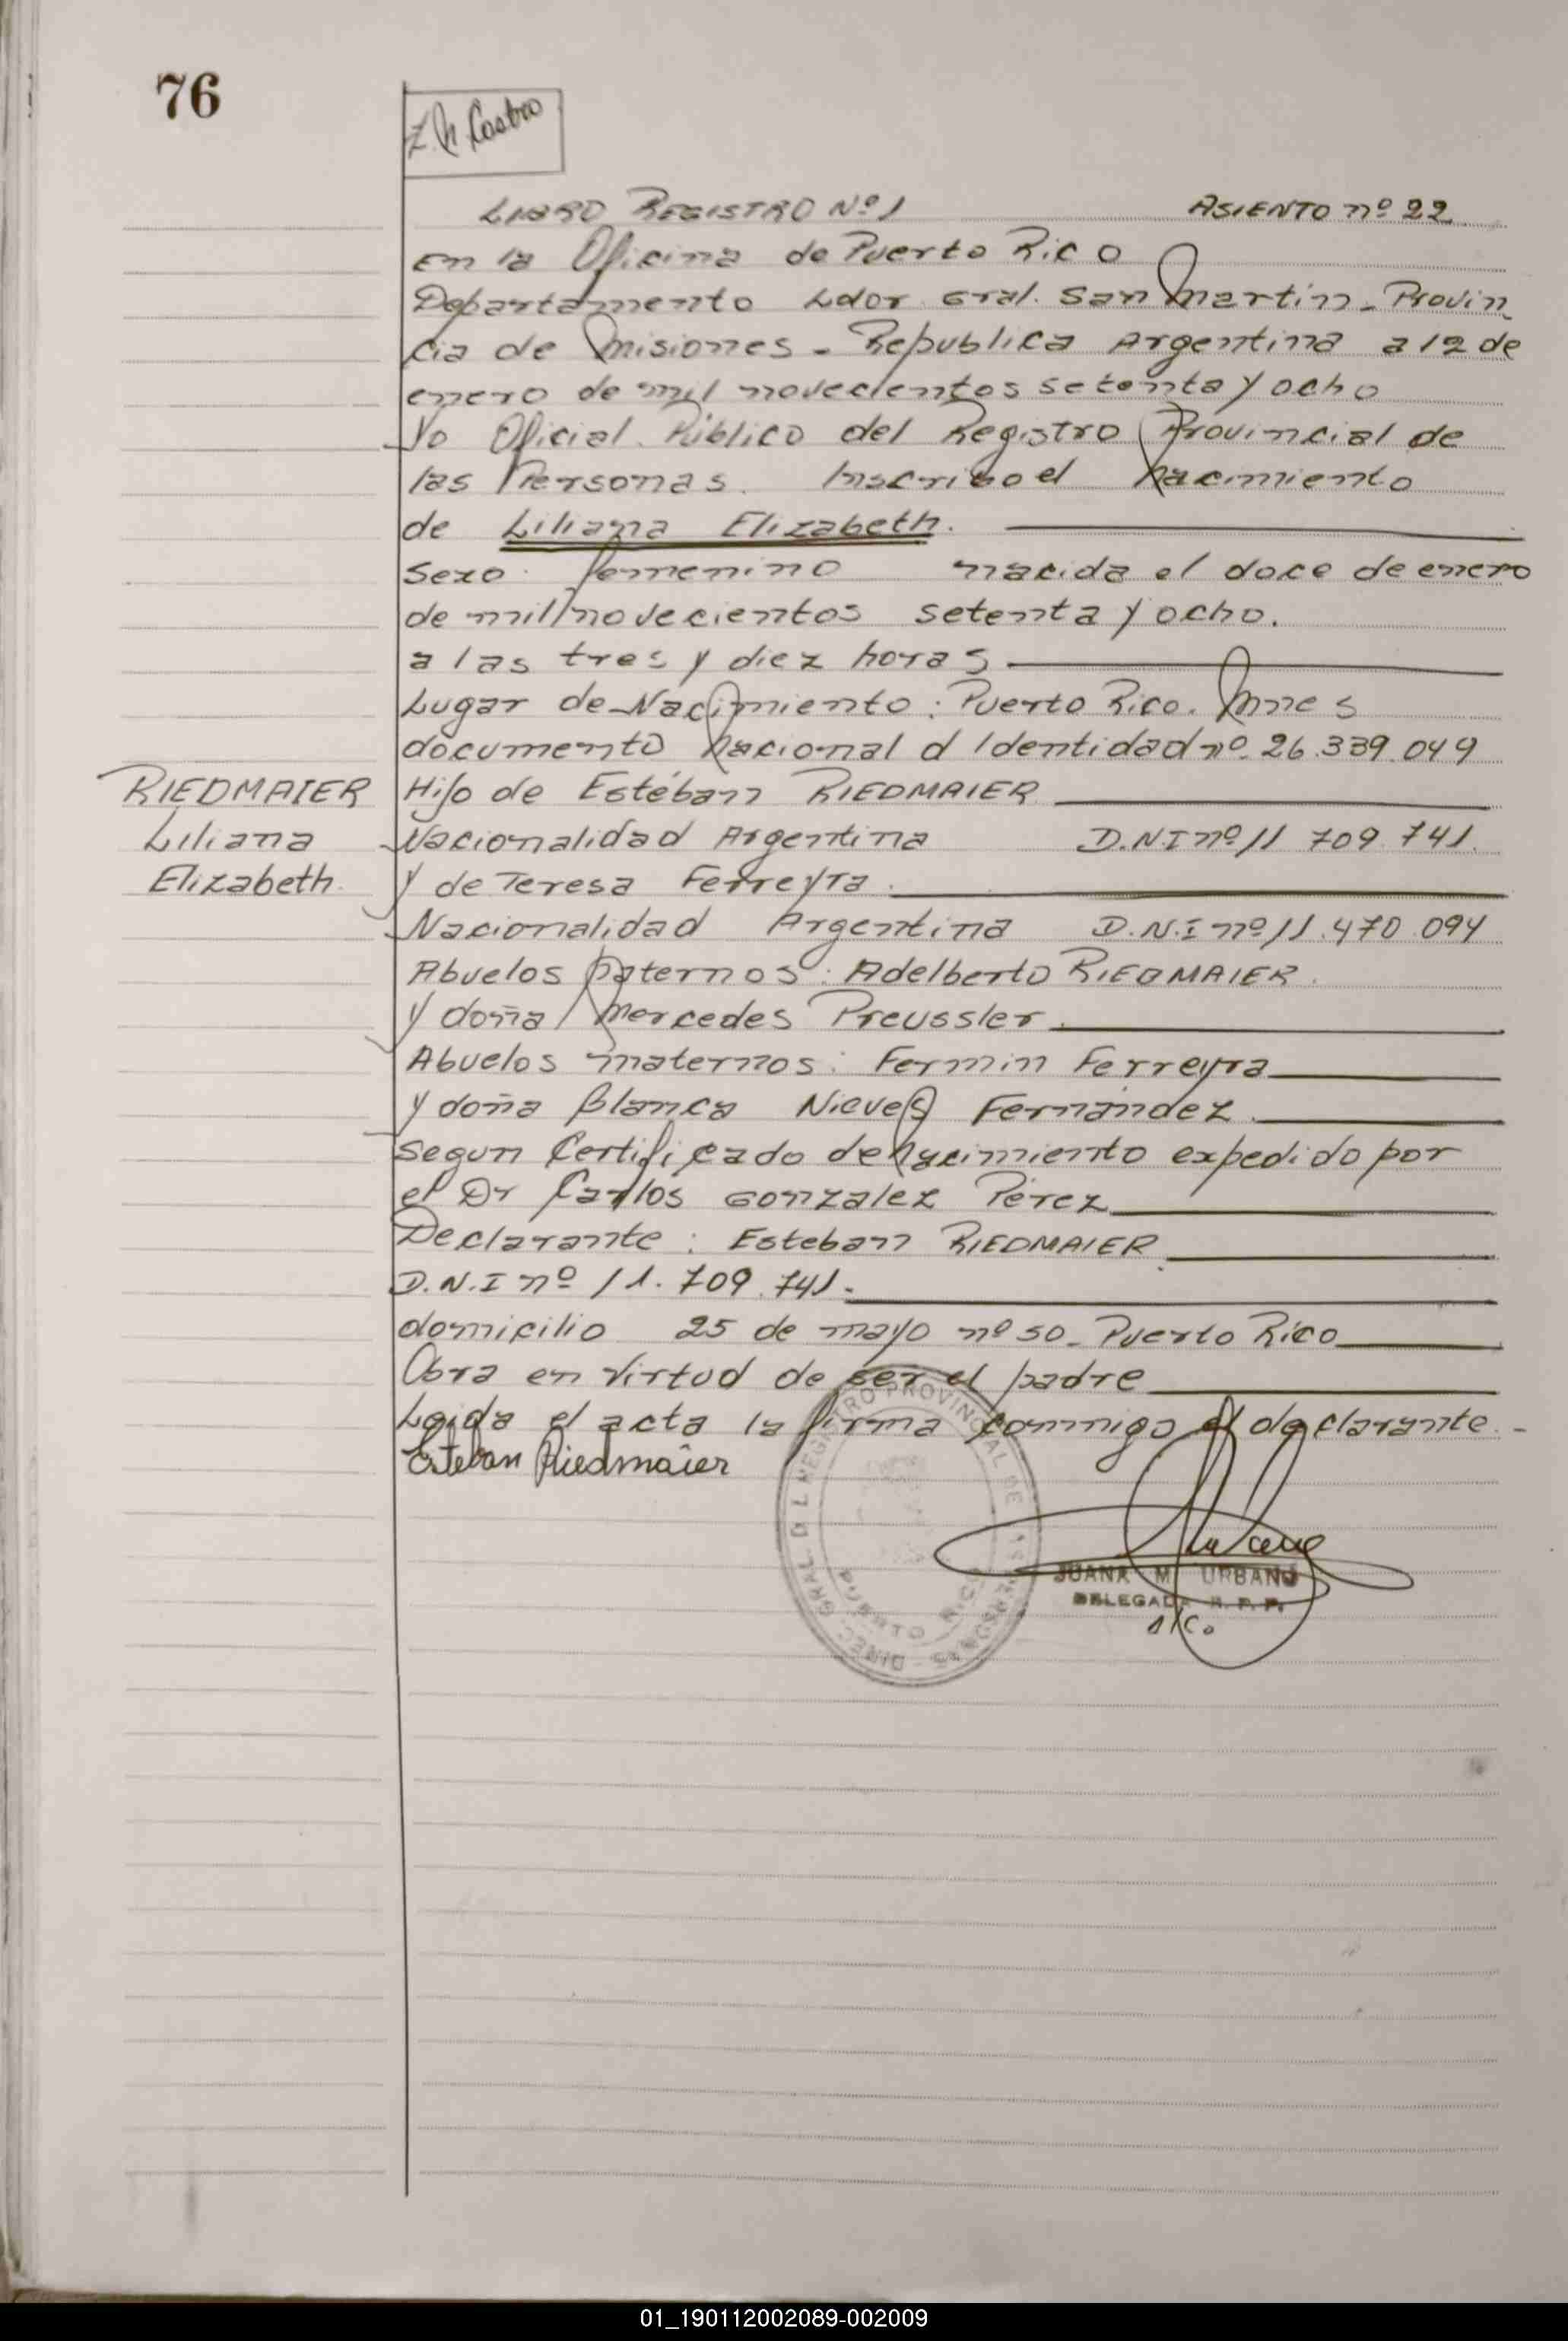 76
Z. N. Castro
LIBRO REGISTRO Nº 1 ASIENTO nº 22
en la Oficina de Puerto Rico
Departamento Ldor Gral. San Martín - Provin
cia de Misiones - Republica Argentina a 12 de
enero de mil novecientos setenta y ocho
Yo Oficial Público del Registro Provincial de
las Personas. Inscribo el Nacimiento
de Liliana Elizabeth.
Sexo femenino nacida el doce de enero
de mil novecientos setenta y ocho.
a las tres y diez horas
Lugar de Nacimiento: Puerto Rico. Mnes
documento Nacional d Identidad nº 26.339.049
RIEDMAIER Hijo de Estéban RIEDMAIER
Liliana Nacionalidad Argentina D.N.I nº 11 709.741.
Elizabeth. y de Teresa Ferreyra.
Nacionalidad Argentina D.N.I nº 11.470.094
Abuelos paternos: Adelberto RIEDMAIER.
y doña Mercedes Preussler.
Abuelos maternos: Fermin Ferreyra
y doña Blanca Nieves Fernandez.
segun Certificado de Nacimiento expedido por
el Dr Carlos Gonzalez Pérez
Declarante: Esteban RIEDMAIER
D.N.I nº 11.709.741.
domicilio 25 de mayo nº 50 - Puerto Rico
Obra en virtud de ser el padre
Leida el acta la firma conmigo el declarante. -
Esteban Riedmaier
DIREC. GRAL. DEL REGISTRO PROVINCIAL DE LAS PERSONAS -
PUERTO RICO
JUANA M. URBANO
DELEGADA R. P. P.
a/c.
01_190112002089-002009